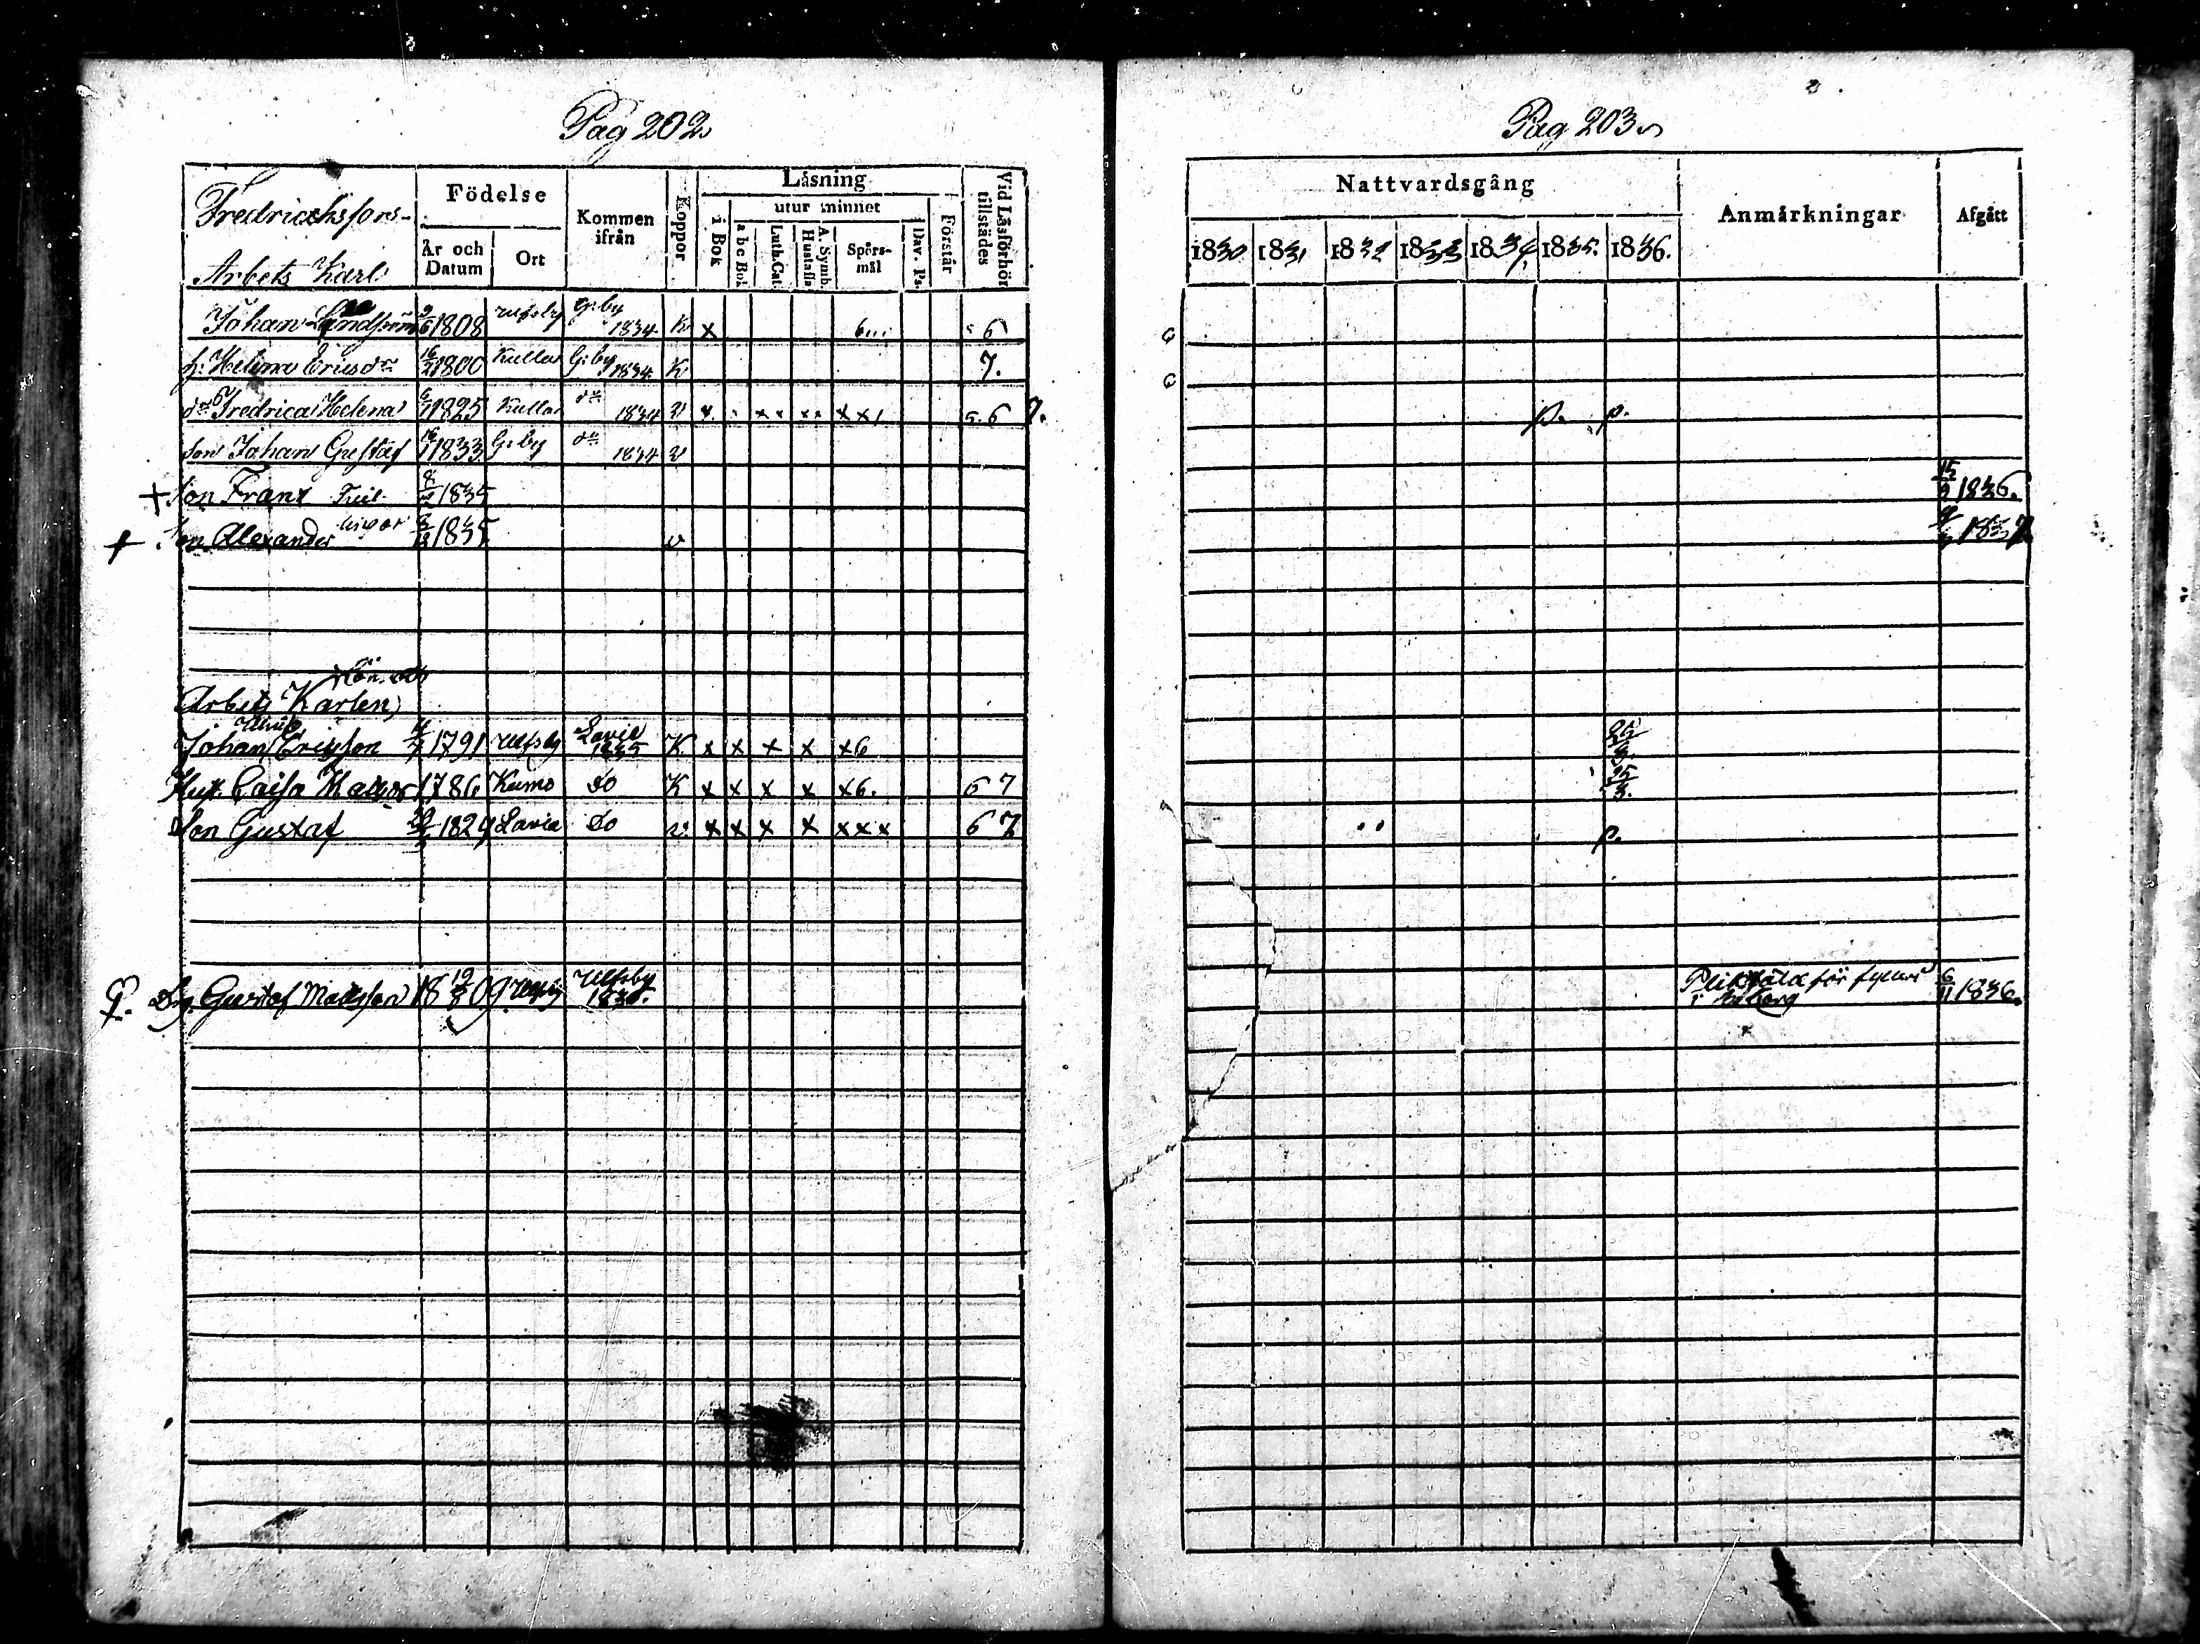 Pag 202
Fredrichsfors-
Arbets Karl
Födelse
År och Datum
Ort
Kommen ifrån
Koppor
Läsning
i Bok
utur minnet
a b c Bok
Luth. Cat.
A. Symb. Hustafla
Spörsmål
Dav. Ps.
Förstår
Vid Läsförhör tillstädes
Johan 1808 Ulfsby G:by 1834 K x 6
h: Helena Ericsdr 16 1800 Kullaa G:by 1834 K 7.
dr Fredrica Helena 6 1825 Kullaa do 1834 v x x x x x x x 5. 6 7.
son Johan Gustaf 16/1 1833 G:by do 1834 v
+ Son Franz 8 1835
+ Son Alexander 8 1835 v
Arbets Karlen
Johan Ericsson 1791 Ulfsby Lavia 1835 K x x x x x6
Hust. Caisa 1786 Kumo Do K x x x x x6. 6 7
Son Gustaf 1829 Lavia Do v. x x x x x x x 6 7
Dr. Gustaf Matsson 18 19/3 09 Ulfsby Ulfsby 1836.
Pag 203
Nattvardsgång
1830 1831 1832 1833 1834 1835. 1836.
Anmärkningar
Afgått
p. p.
15/9 1836.
1837.
25/3.
25/3.
p.
för
i 6/11 1836.